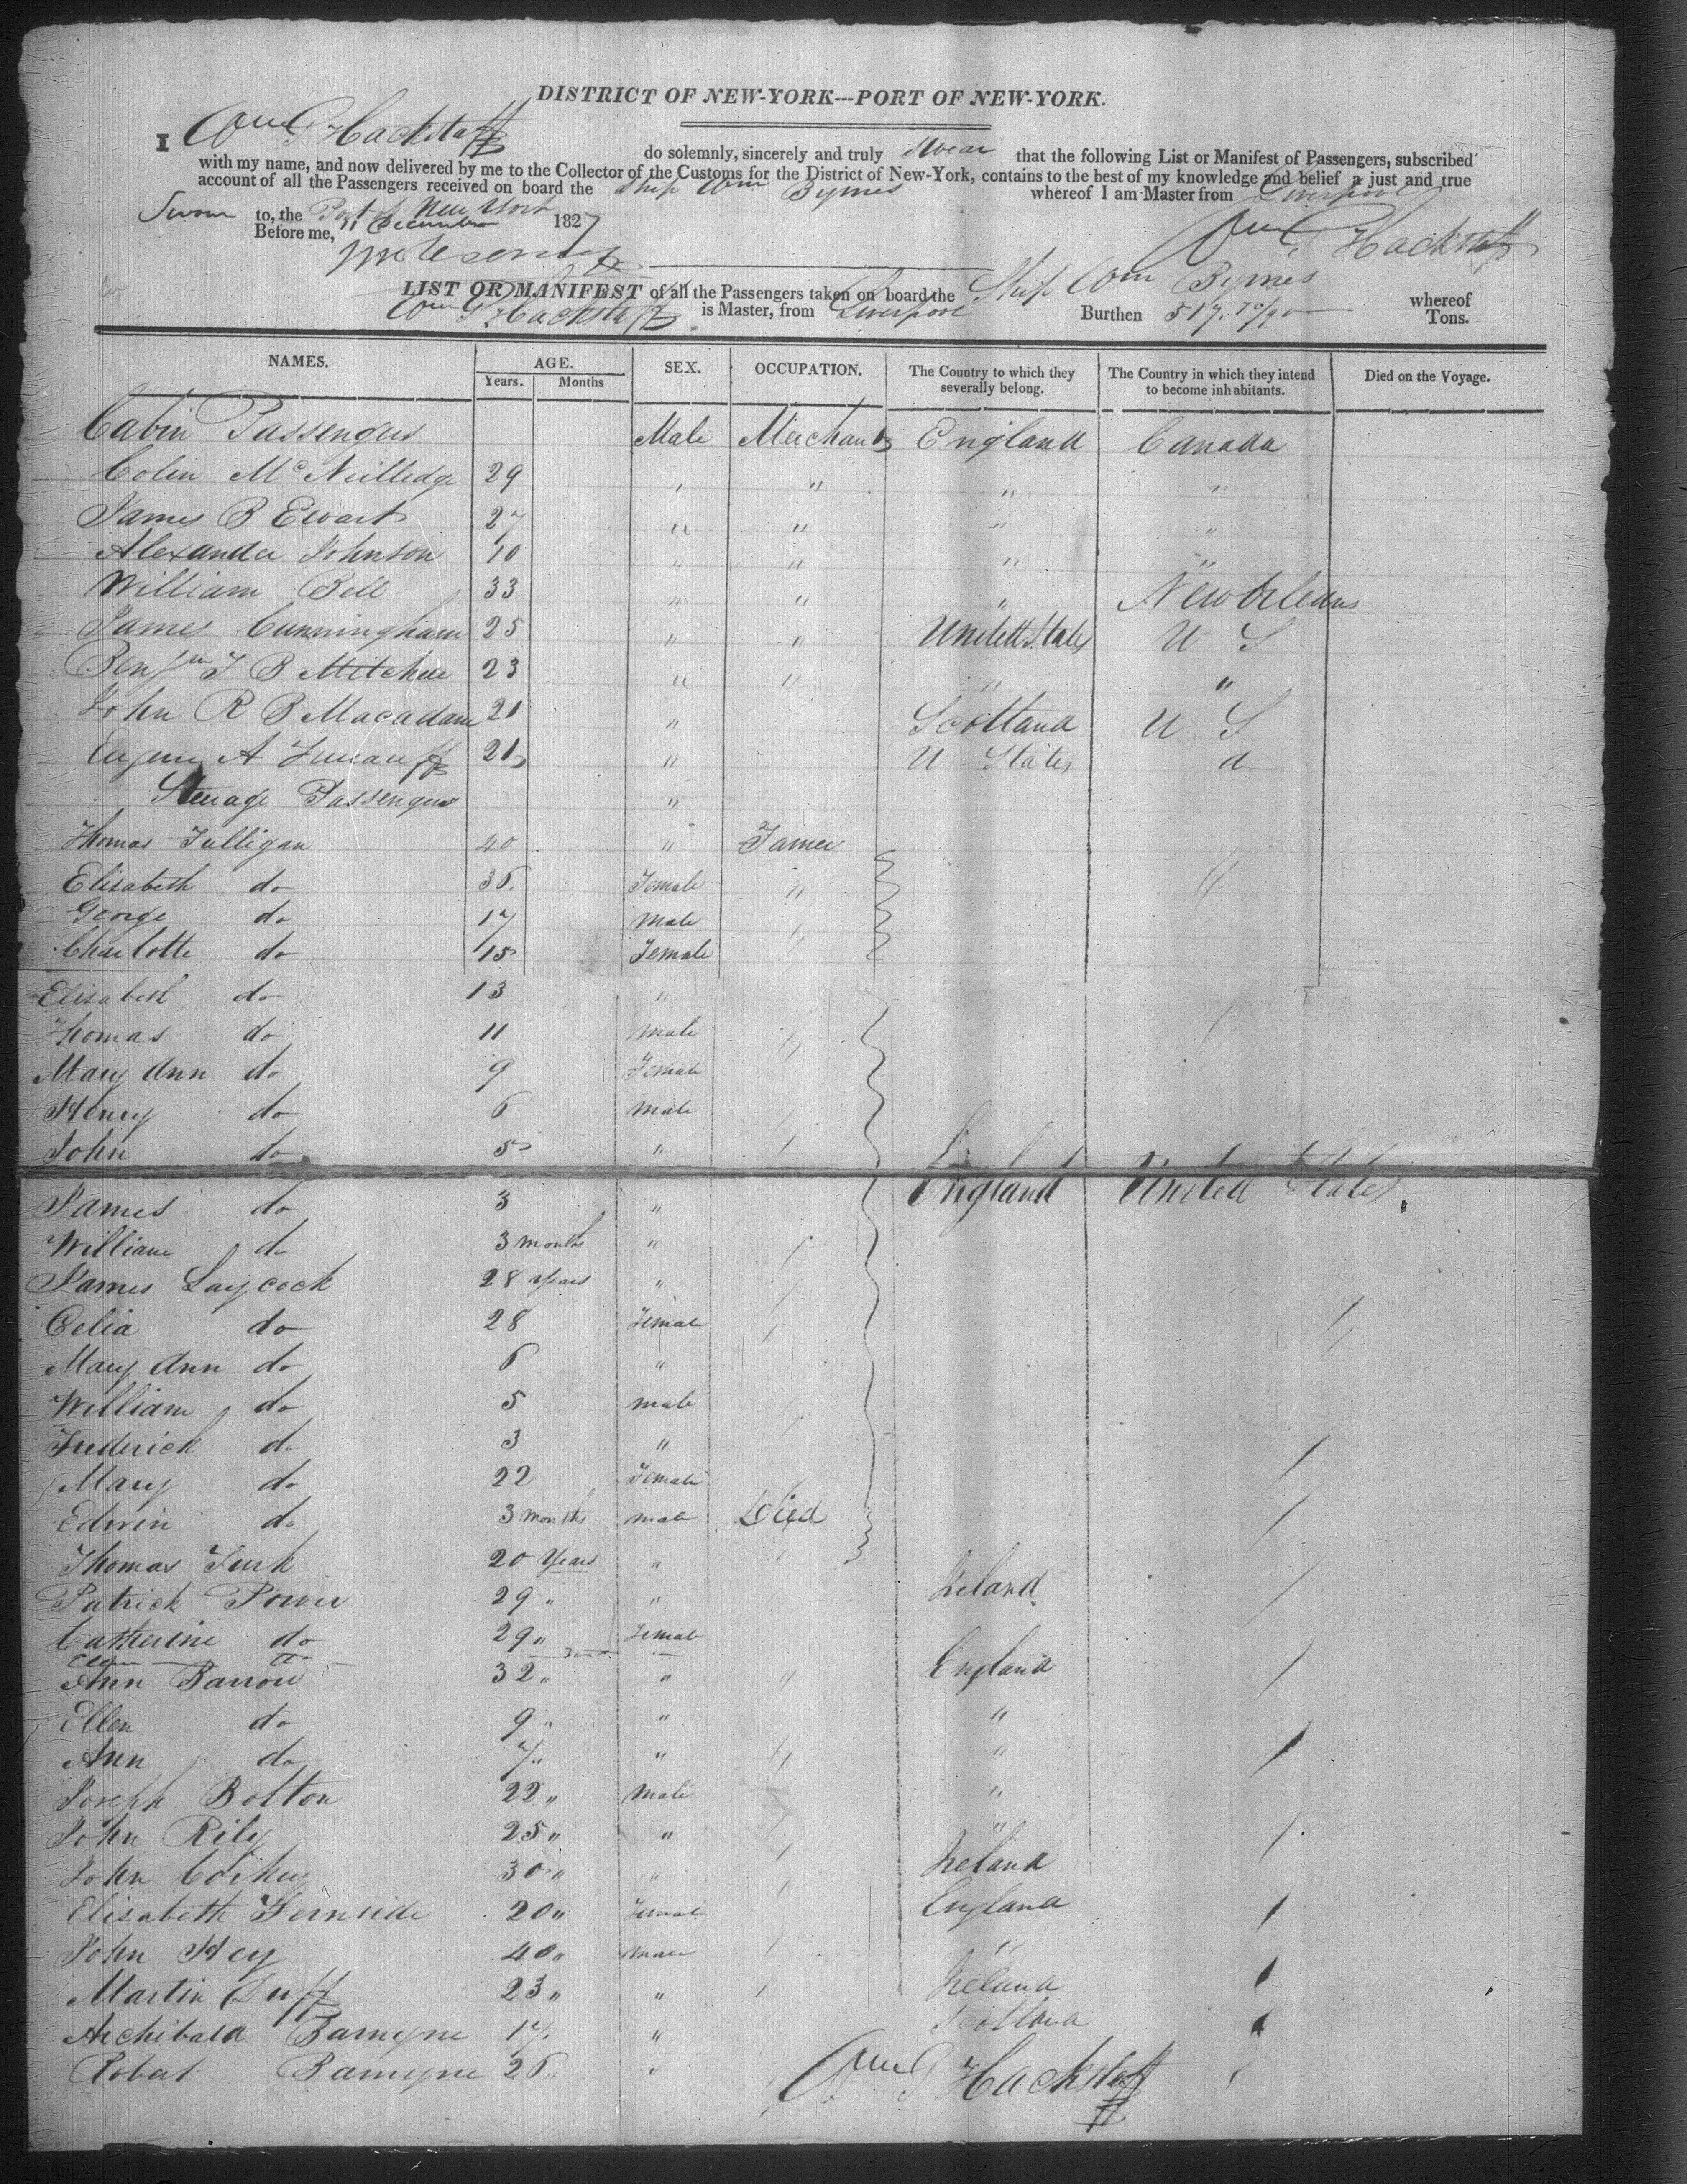 DISTRICT OF NEW-YORK---PORT OF NEW-YORK.
I Wm G Hackstaff do solemnly, sincerely and truly swear that the following List or Manifest of Passengers, subscribed
with my name, and now delivered by me to the Collector of the Customs for the District of New-York, contains to the best of my knowledge and belief a just and true
account of all the Passengers received on board the Ship Wm Byrnes whereof I am Master from Liverpool
Sworn to, the Port of New York
Before me, 11 December 1827
Wm G Hackstaff
LIST OR MANIFEST of all the Passengers taken on board the Ship Wm Byrnes whereof
Wm G Hackstaff is Master, from Liverpool Burthen 517. 70/90 Tons.
NAMES. AGE. SEX. OCCUPATION. The Country to which they severally belong. The Country in which they intend to become inhabitants. Died on the Voyage.
Years. Months
Cabin Passengers Male Merchants England Canada
Colin McNeilledge 29 " " " "
James B Ewart 27 " " " "
Alexander Johnson 10 " " " "
William Bell 33 " " " New Orleans
James Cunningham 25 " " United States U S
Benjm T B Mitchel 23 " " " "
John R B Macadam 21 " Scotland U S
A 21 " U States d
Steerage Passengers "
Thomas Tulligan 40 " Farmer
Elisabeth do 36 Female " "
George do 17 Male
Charlotte do 15 Female "
Elisabeth do 13 "
Thomas do 11 Male "
Mary Ann do 9 Female
Henry do 6 Male
John do 5 "
James do 3 " England United States
William do 3 months "
James Laycock 28 years "
Celia do 28 Female
Mary Ann do 6 "
William do 5 male
Frederick do 3 "
Mary do 22 Female
Edwin do 3 months male Died
Thomas 20 Years "
Patrick Power 29 " " Ireland
Catherine do 29 " Female
Ellen do
Ann Barrow 32 " " " England
Ellen do 9 " " "
Ann do 7 " " " "
Joseph Bolton 22 " Male "
John Rily 25 " " "
John 30 " " Ireland
Elisabeth Fernside 20 " Female England
John Hey 40 " Male "
Martin Duff 23 " " Ireland
Archibald 17 " Scotland
Robert 26 " "
Wm G Hackstaff